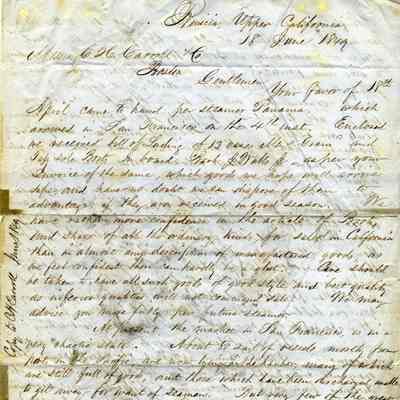 Benicia Upper California
18 June 1849
Messrs C. H. Carroll & Co
Boston
Gentlemen
Your favor of 18th
April came to hand per steamer Panama which
arrived in San Francisco on the 4 inst. Enclosed
we received bill of Lading of 13 cases
Boots on board as per your
Invoice of the same which goods we hope will soon
and have no doubt we can dispose of them to
advantage if they are received in good season. We
have more confidence in the article of Boots
and shoes of all the ordinary kinds for sale in California
than in almost any description of manufactured goods, as
we feel confident there can hardly be a glut. One should
be taken to have all such goods of good style and best quality
as inferior qualities will not command sale. We may
advise you more fully per return steamer.
At present the market in San Francisco is in a
very chaotic state. About 60 sail of vessels mostly from
ports in the Pacific are now lying in the harbor, many of which
are still full of goods, and those which have been discharged unable
to get away for want of seamen. But very few of the
Cpy to C H Carroll June 1849